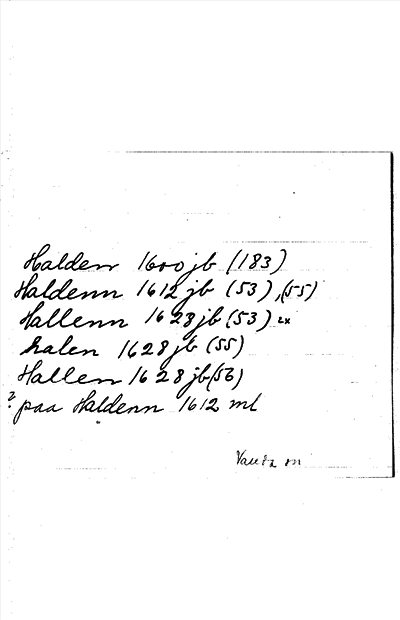 Halden 1600 jb (183)
Haldenn 1612 jb (53), (55)
Hallenn 1628 jb (53) 2x
halen 1628 jb (55)
Hallen 1628 jb (56)
? paa Haldenn 1612 ml